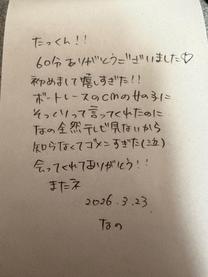 たっくん!!
60分ありがとうございました♡
初めまして嬉しすぎた!!
ボートレースのCMの女の子に
そっくりって言ってくれたのに
なの全然テレビ見ないから
知らなくてゴメンすぎた(泣)
会ってくれてありがとう!!
またネ
2026.3.23
なの